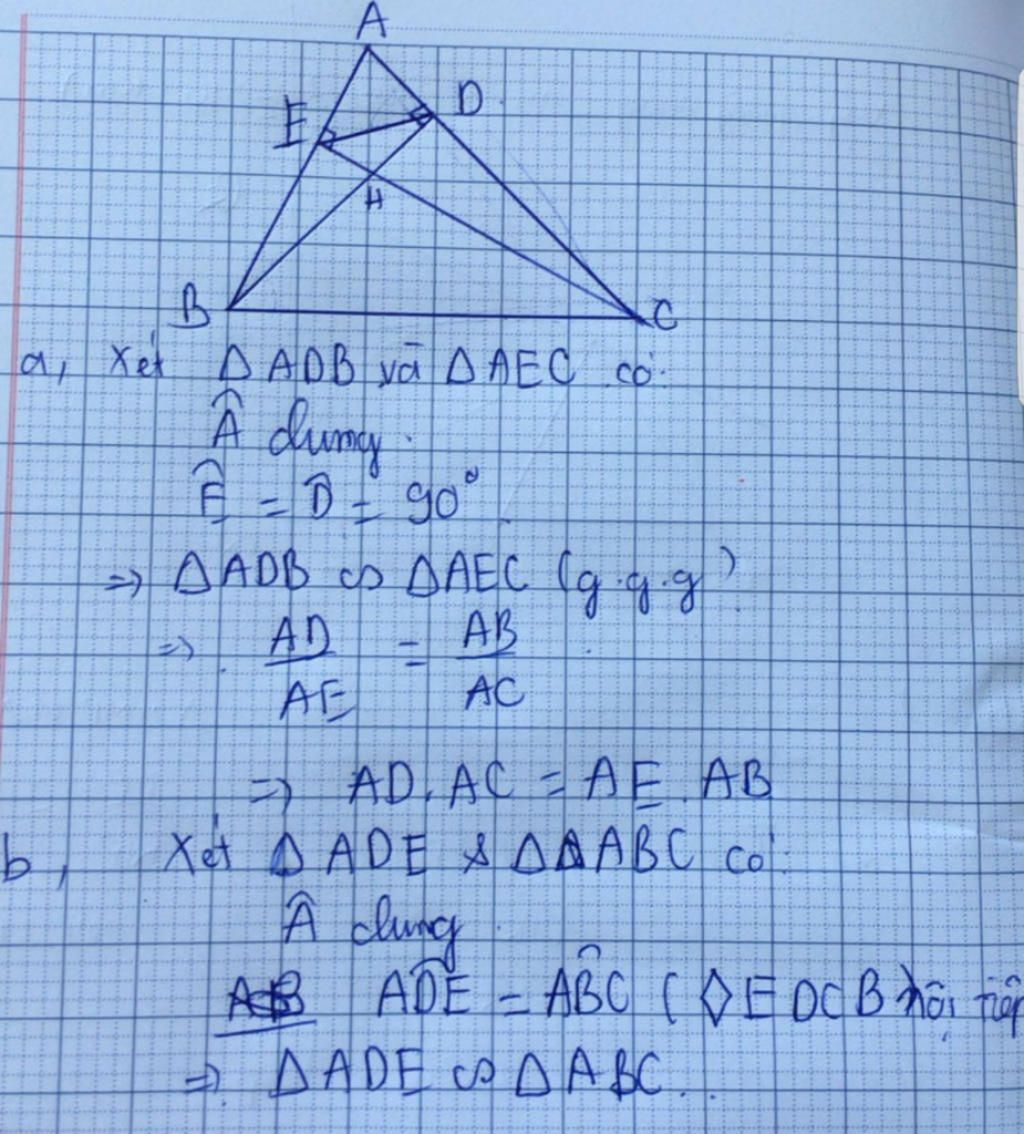 A
E
D
H
B
C
a, Xét ΔADB và ΔAEC có:
Â chung.
Ê = D̂ = 90°
=> ΔADB ∽ ΔAEC (g.g.g)
=> AD/AE = AB/AC
=> AD.AC = AE.AB
b, Xét ΔADE & ΔABC có:
Â chung
AD̂E = AB̂C (◊EDCB nội tiếp
=> ΔADE ∽ ΔABC.